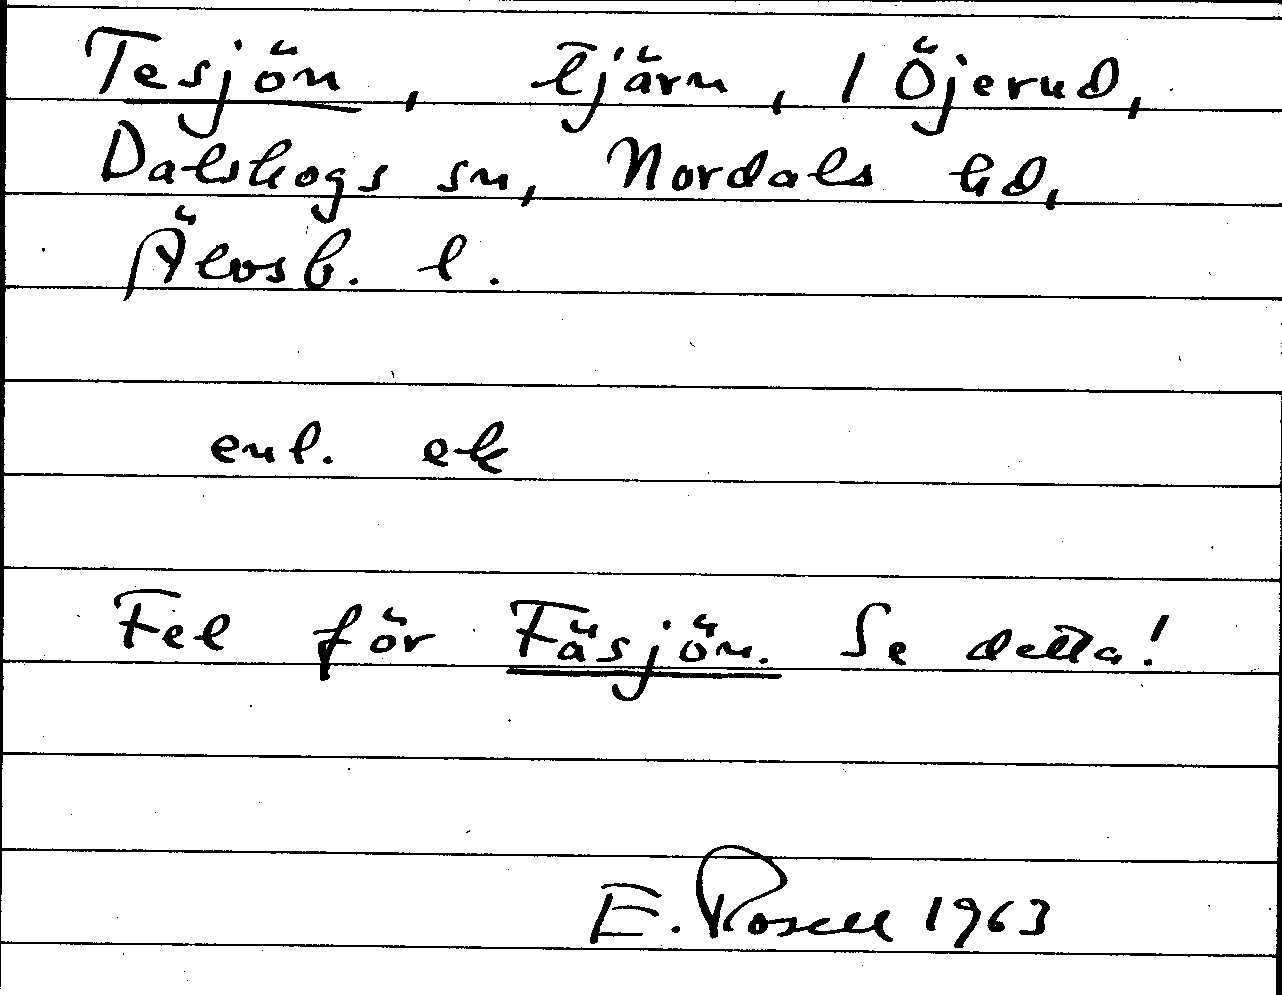 Tesjön, tjärn, 1 Öjerud,
Dalskogs sn, Nordals hd,
Älvsb. l.
enl. ek
Fel för Fäsjön. Se detta!
E. Rosell 1963